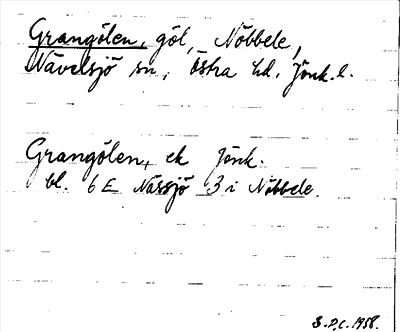 Grangölen, göl, Nöbbele,
Nävelsjö sn, Östra hd. Jönk. l.
Grangölen, ek Jönk.
bl. 6 E Nässjö 3 i Nöbbele.
S.D.C. 1958.